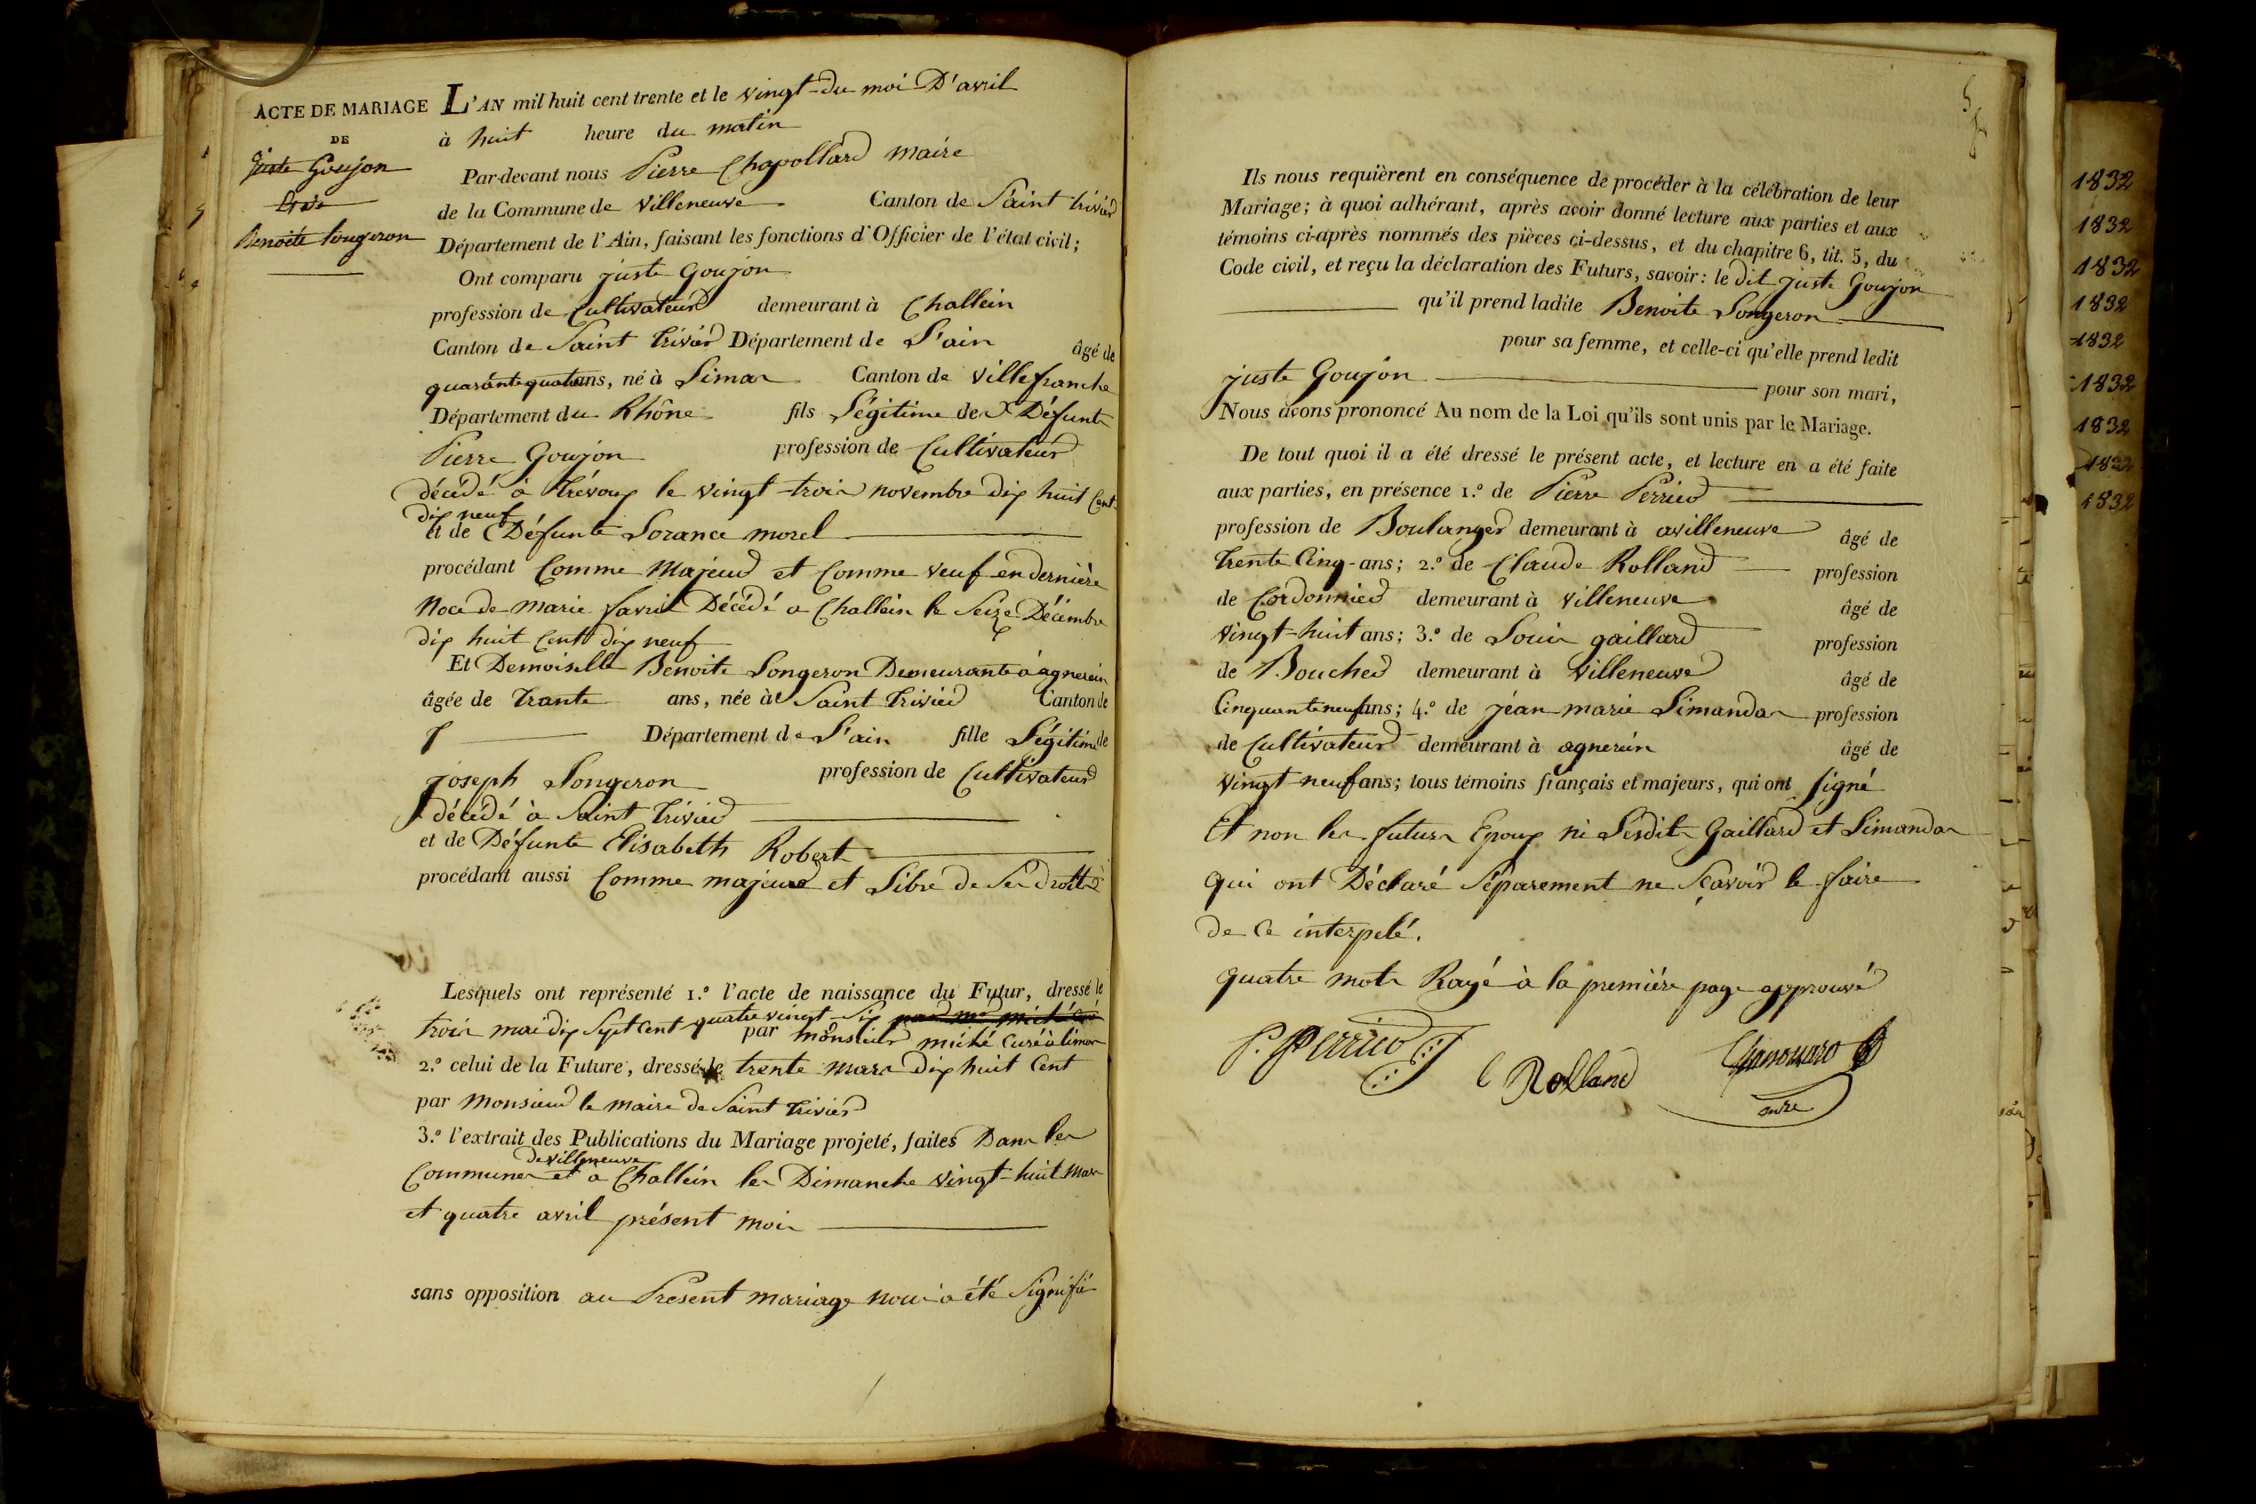 ACTE DE MARIAGE
DE
juste Goujon
Et de
Benoite Longeron
L'AN mil huit cent trente et le vingt du moi D'avril
à huit heure du matin
Par-devant nous Pierre Chapollard maire
de la Commune de villeneuve Canton de Saint trivier
Département de l'Ain, faisant les fonctions d'Officier de l'état civil;
Ont comparu juste Goujon
profession de Cultivateur demeurant à Challein
Canton de Saint trivier Département de L'ain âgé de
quarante quatre ans, né à Limas Canton de villefranche
Département du Rhône fils Légitime de Défunt
Pierre Goujon profession de Cultivateur
décédé à trévoux le vingt-trois novembre dix huit Cent
dix neuf
et de Défunte Lorance morel
procédant Comme Majeur et Comme veuf en dernière
Noce de marie Décédé a Challein le Seize Décembre
dix huit Cent dix neuf
Et Demoiselle Benoite Longeron Demeurante à agnerein
âgée de trante ans, née à Saint trivier Canton de
Département de L'ain fille Légitime de
joseph Longeron profession de Cultivateur
décédé à Saint trivier
et de Défunte Elisabeth Robert
procédant aussi Comme majeure et Libre de Ses droits
Lesquels ont représenté 1.º l'acte de naissance du Futur, dressé le
trois mai dix Sept Cent quatre vingt-six
par monsieur miché Curé à limas
2.º celui de la Future, dressé le trente mars Dix huit Cent
par Monsieur le maire de Saint trivier
3.º l'extrait des Publications du Mariage projeté, faites Dans les
de villeneuve
Communes et à Challein les Dimanche vingt-huit mars
et quatre avril présent mois
sans opposition au Présent mariage nous à été Signifié
Ils nous requièrent en conséquence de procéder à la célébration de leur
Mariage; à quoi adhérant, après avoir donné lecture aux parties et aux
témoins ci-après nommés des pièces ci-dessus, et du chapitre 6, tit. 5, du
Code civil, et reçu la déclaration des Futurs, savoir: le dit juste Goujon
qu'il prend ladite Benoite Longeron
pour sa femme, et celle-ci qu'elle prend ledit
juste Goujon pour son mari,
Nous avons prononcé Au nom de la Loi qu'ils sont unis par le Mariage.
De tout quoi il a été dressé le présent acte, et lecture en a été faite
aux parties, en présence 1.º de Pierre Perrier
profession de Boulanger demeurant à avilleneuve âgé de
trente Cinq ans; 2.º de Claude Rolland profession
de Cordonnier demeurant à villeneuve âgé de
vingt-huit ans; 3.º de Louis gaillard profession
de Boucher demeurant à villeneuve âgé de
Cinquante neuf ans; 4.º de jéan marie Limandas profession
de Cultivateur demeurant à agnerein âgé de
vingt neuf ans; tous témoins français et majeurs, qui ont signé
Et non les futurs Epoux ni Lesdits Gaillard et Limandas
qui ont Déclaré Séparement ne Sçavoir le faire
de Ce interpelé.
quatre mots Rayé à la première page approuvé
P. Perrier
C Rolland
1832
1832
1832
1832
1832
1832
1832
1832
1832